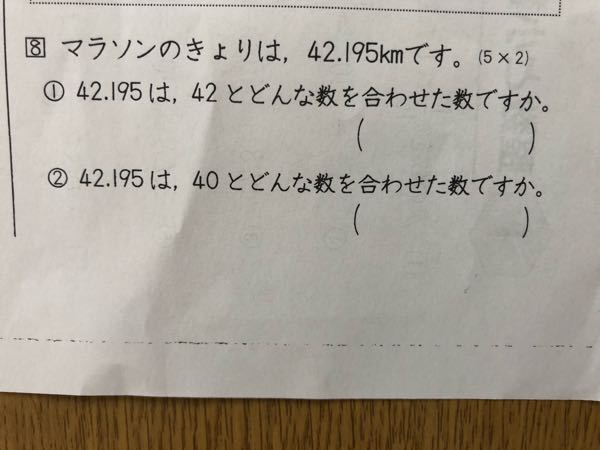 8 マラソンのきょりは，42.195kmです。(5×2)
① 42.195は，42とどんな数を合わせた数ですか。
( )
② 42.195は，40とどんな数を合わせた数ですか。
( )